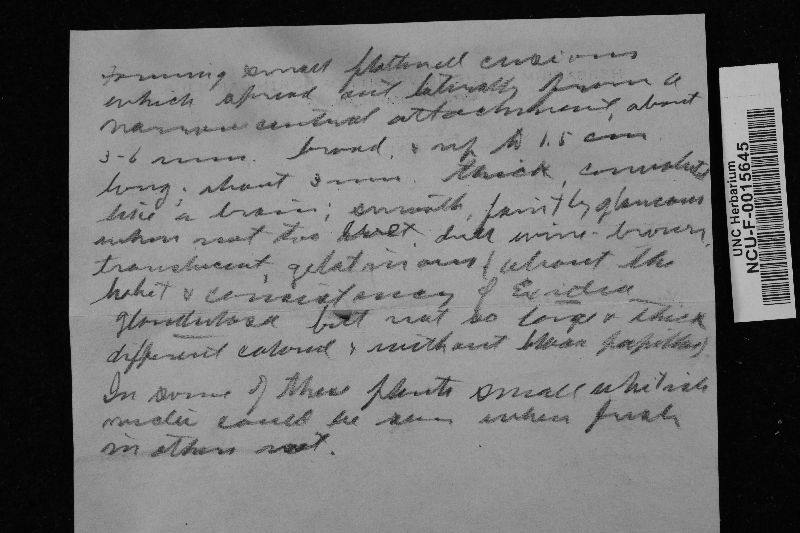 Forming small flattened cusions
which spread out laterally from a
narrow central attachment, about
3-6 mm. broad, & up to 1.5 cm
long; about 3 mm thick, convoluted
like a brain; smooth, faintly glaucous
when not too wet, dull wine-brown,
translucent, gelatinous (about the
habit & consistancy of Exidia
glandulosa but not so large & thick
different colored & without black papillae)
In some of these plants small whitish
nuclei could be seen when fresh
in others not.
UNC Herbarium
NCU-F-0015645